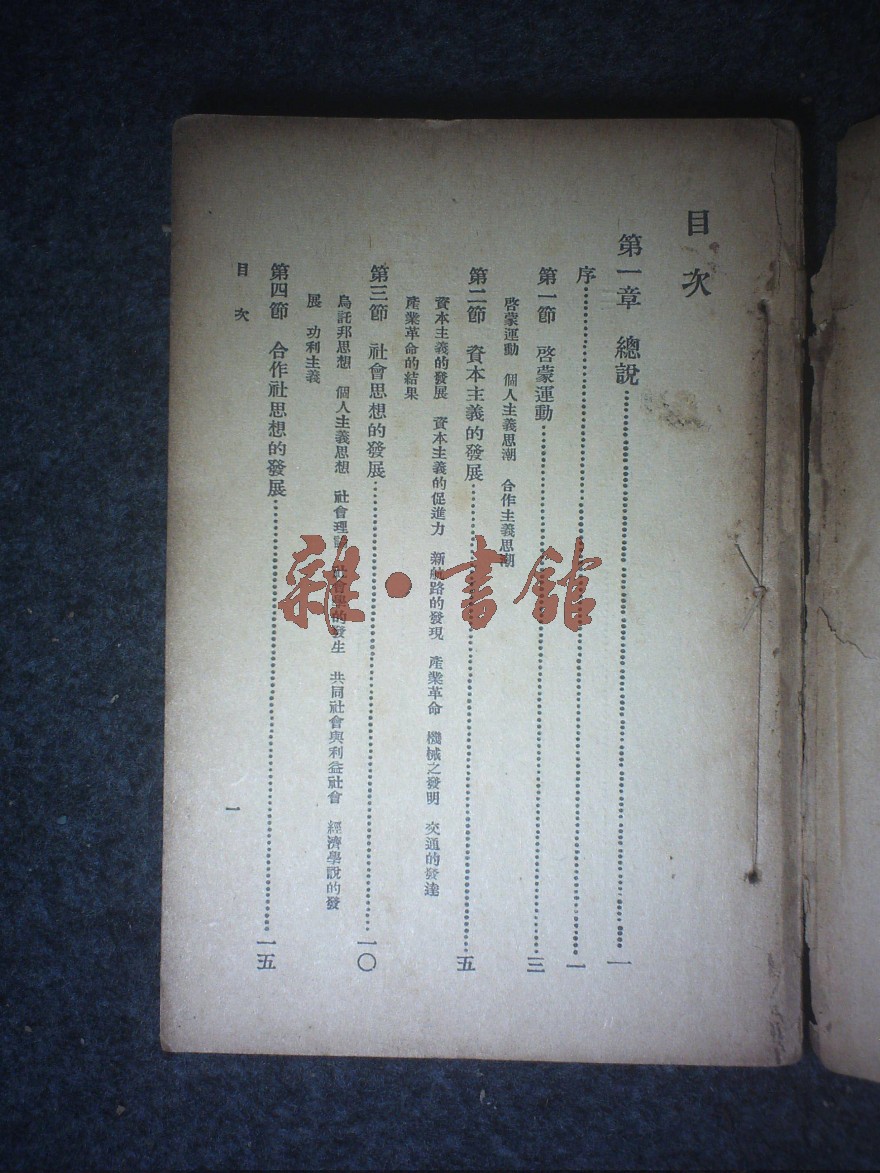 目次
第一章　總說……一
序……一
第一節　啓蒙運動……三
啓蒙運動　個人主義思潮　合作主義思潮
第二節　資本主義的發展……五
資本主義的發展　資本主義的促進力　新航路的發現　產業革命　機械之發明　交通的發達
產業革命的結果
第三節　社會思想的發展……一〇
烏託邦思想　個人主義思想　社會理　社會學的發生　共同社會與利益社會　經濟學說的發
展　功利主義
第四節　合作社思想的發展……一五
目次
一
雜·書館